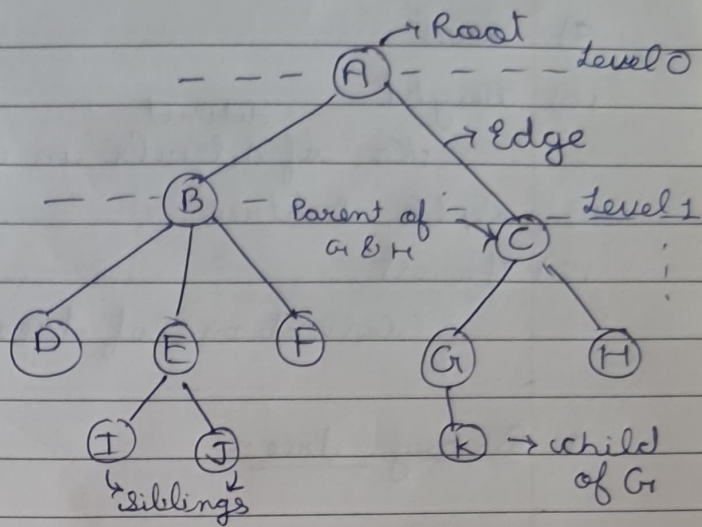 Root
A
Level 0
Edge
B
Parent of
G & H
C
Level 1
D
E
F
G
H
I
J
K
child
of G
siblings